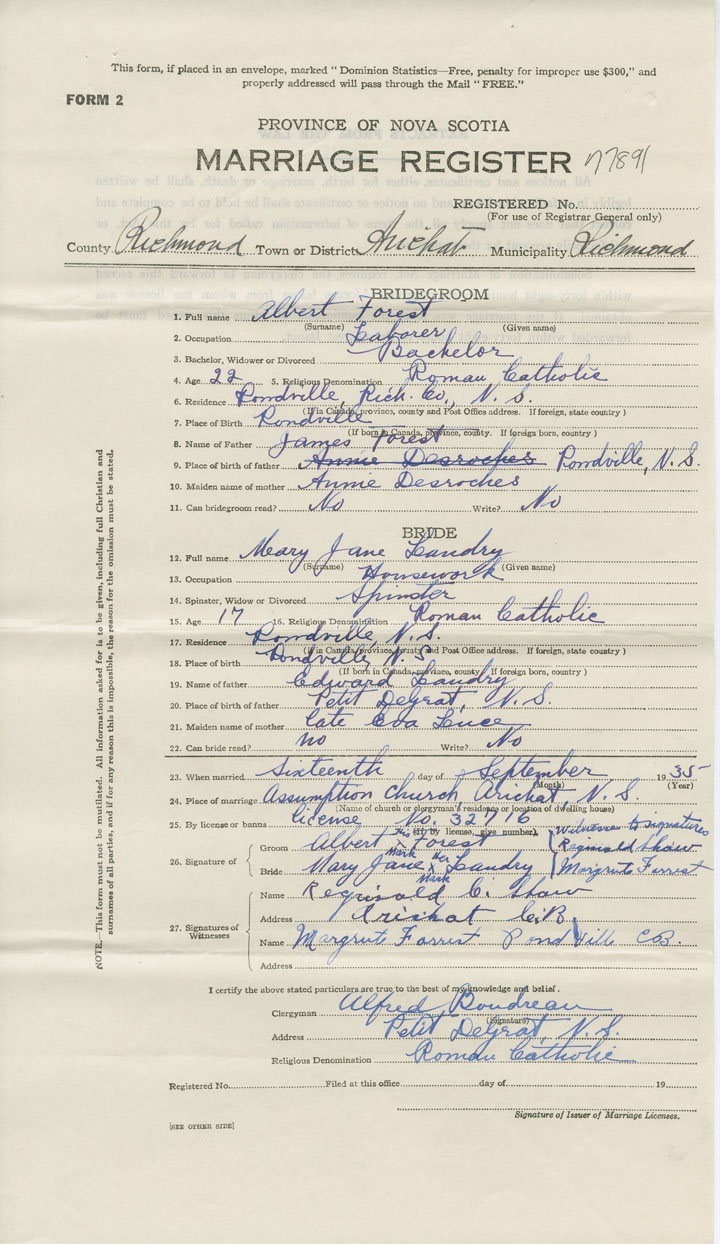 This form, if placed in an envelope, marked "Dominion Statistics—Free, penalty for improper use $300," and
properly addressed will pass through the Mail "FREE."
FORM 2
PROVINCE OF NOVA SCOTIA
MARRIAGE REGISTER
REGISTERED No.
(For use of Registrar General only)
County Richmond Town or District Arichat Municipality Richmond
BRIDEGROOM
1. Full name Albert Forest
(Surname) (Given name)
2. Occupation Laborer
3. Bachelor, Widower or Divorced Bachelor
4. Age 22 5. Religious Denomination Roman Catholic
6. Residence Pondville, Rich. Co., N. S.
(If in Canada, province, county and Post Office address. If foreign, state country)
7. Place of Birth Pondville
(If born in Canada, province, county. If foreign born, country)
8. Name of Father James Forest
9. Place of birth of father Annie Desroches Pondville, N. S.
10. Maiden name of mother Annie Desroches
11. Can bridegroom read? No Write? No
BRIDE
12. Full name Mary Jane Landry
(Surname) (Given name)
13. Occupation Housework
14. Spinster, Widow or Divorced Spinster
15. Age 17 16. Religious Denomination Roman Catholic
17. Residence Pondville, N. S.
(If in Canada, province, county and Post Office address. If foreign, state country)
18. Place of birth Pondville, N. S.
(If born in Canada, province, county. If foreign born, country)
19. Name of father Edward Landry
20. Place of birth of father Petit DeGrat, N. S.
21. Maiden name of mother late Eva
22. Can bride read? no Write? No
23. When married Sixteenth day of September 1935
(Month) (Year)
24. Place of marriage Assumption Church, Arichat, N. S.
(Name of church or clergyman's residence or location of dwelling house)
25. By license or banns license No. 32776
(If by license, give number)
26. Signature of
Groom Albert his x mark Forest
Bride Mary Jane her x mark Landry
Witnesses to signatures
Reginald Shaw
Margrute Forrest
27. Signatures of Witnesses
Name Reginald C. Shaw
Address Arichat C.B.
Name Margrute Forrest Pond Ville CB.
Address
I certify the above stated particulars are true to the best of my knowledge and belief.
Clergyman Alfred Boudreau
(Signature)
Address Petit DeGrat, N. S.
Religious Denomination Roman Catholic
Registered No. Filed at this office day of 19
Signature of Issuer of Marriage Licenses.
[SEE OTHER SIDE]
NOTE.—This form must not be mutilated. All information asked for is to be given, including full Christian and
surnames of all parties, and if for any reason this is impossible, the reason for the omission must be stated.